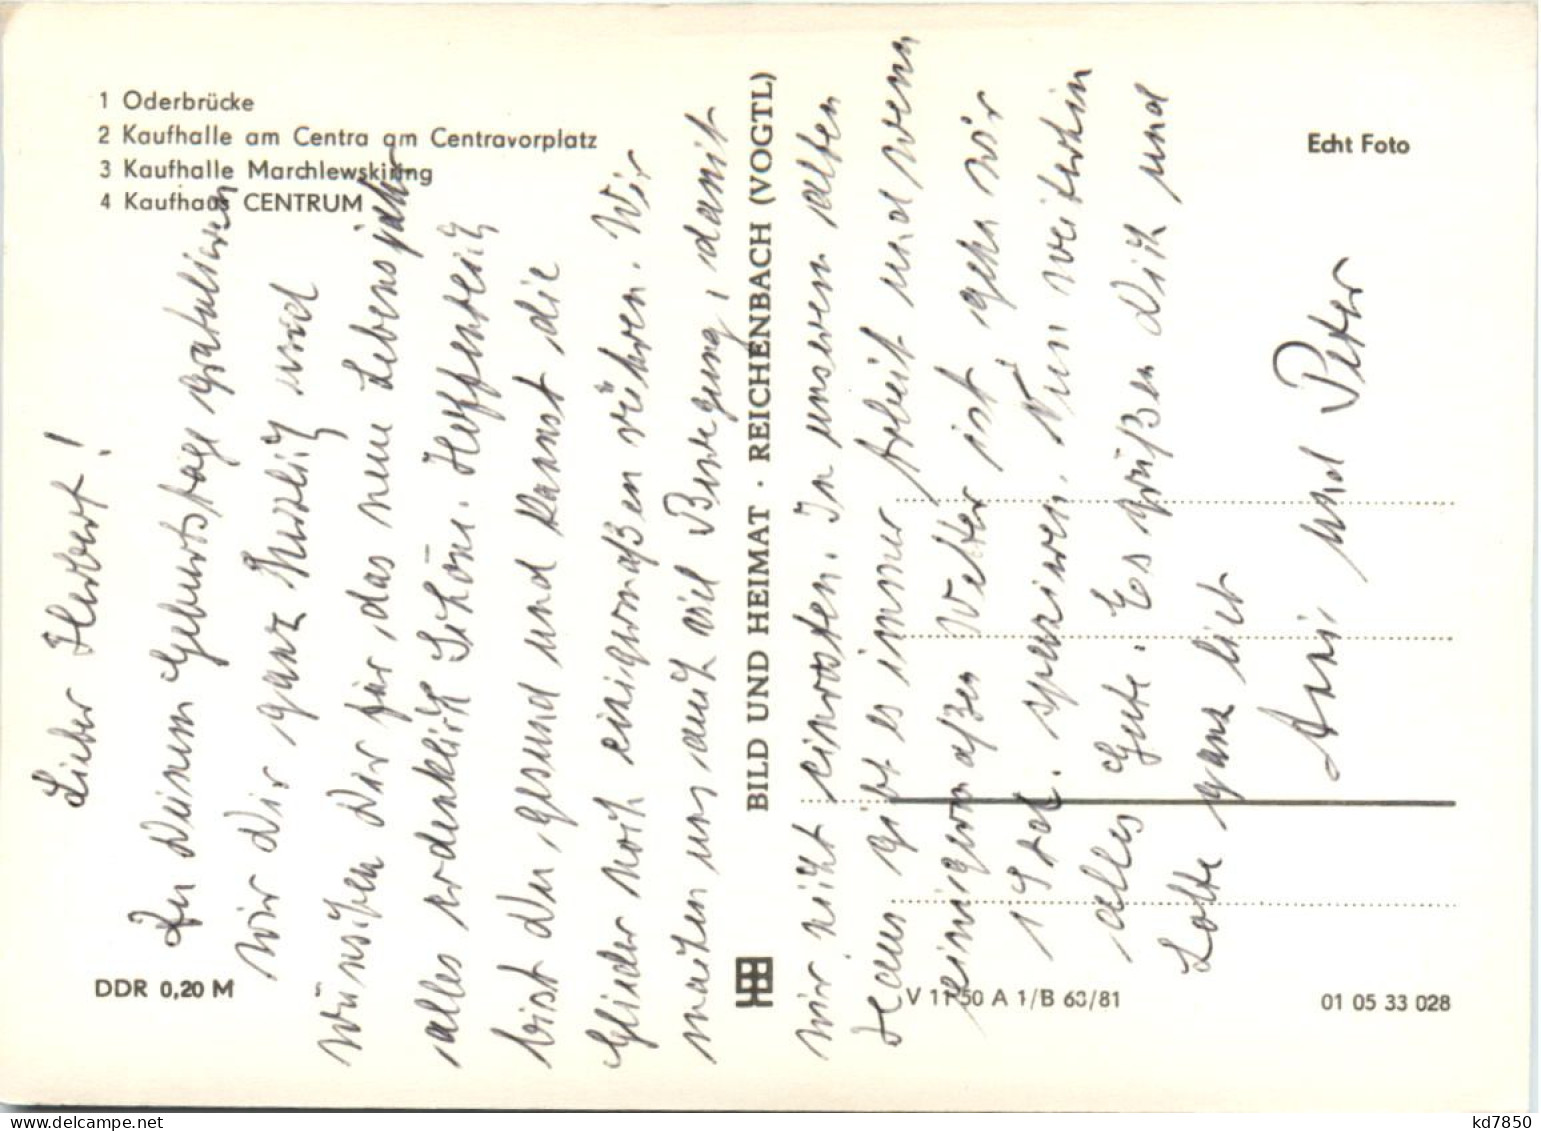 1 Oderbrücke
2 Kaufhalle am Centra am Centravorplatz
3 Kaufhalle Marchlewskiring
4 Kaufhaus CENTRUM
Echt Foto
BILD UND HEIMAT · REICHENBACH (VOGTL)
DDR 0,20 M
V 11 50 A 1/B 63/81
01 05 33 028
Lieber Herbert!
Zu Deinem Geburtstage gratulieren
wir Dir ganz herzlich und
wünschen Dir für das neue Lebensjahr
alles erdenklich Schöne. Hoffentlich
bist Du gesund und kannst die
Glieder noch einigermaßen rühren. Wir
machen uns auch viel Bewegung, damit
wir nicht einrosten. In unserem alten
Haus gibt es immer Arbeit und wenn
einigermaßen Wetter ist gehn wir
spazieren. Nun weiterhin
alles Gute. Es grüßen Dich und
Lotte ganz lieb
Anni und Peter
kd7850